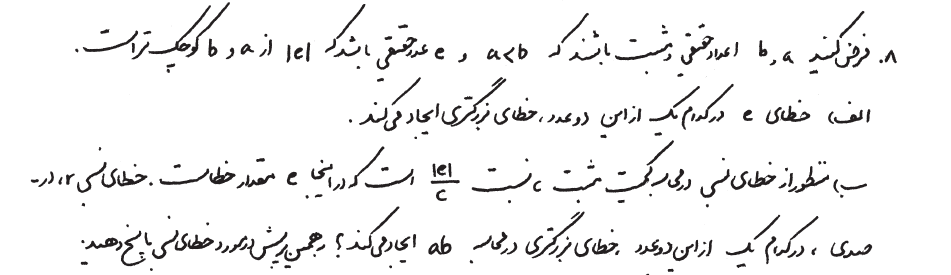 ۸. فرض کنید a و b اعداد حقیقی و مثبت باشند که a<b و e عدد حقیقی باشد که |e| از a و b کوچک تر است.
الف) خطای e در کدام یک از این دو عدد، خطای بزرگتری ایجاد می کند.
ب) منظور از خطای نسبی در محاسبه کمیت مثبت c، نسبت |e|/c است که در اینجا e مقدار خطاست. خطای نسبی r، در-
صدی، در کدام یک از این دو عدد، خطای بزرگتری در محاسبه ab ایجاد می کند؟ به همین پرسش در مورد خطای نسبی پاسخ دهید.